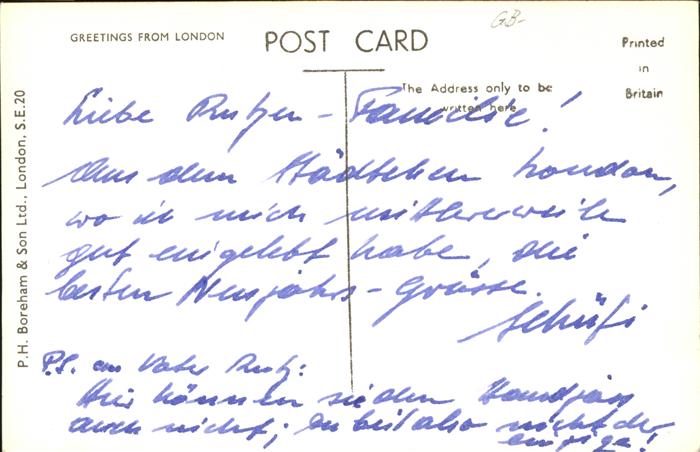 GB-
GREETINGS FROM LONDON
POST CARD
Printed
in
Britain
The Address only to be
written here
P.H. Boreham & Son Ltd., London, S.E.20
Liebe - Familie!
Aus dem Städtchen London,
wo ich mich mittlerweile
gut eingelebt habe, die
besten Neujahrs-Grüsse.
Schüfi
P.S. an Vater
Hier können sie den Handjass
auch nicht; Du bist also nicht der
einzige!